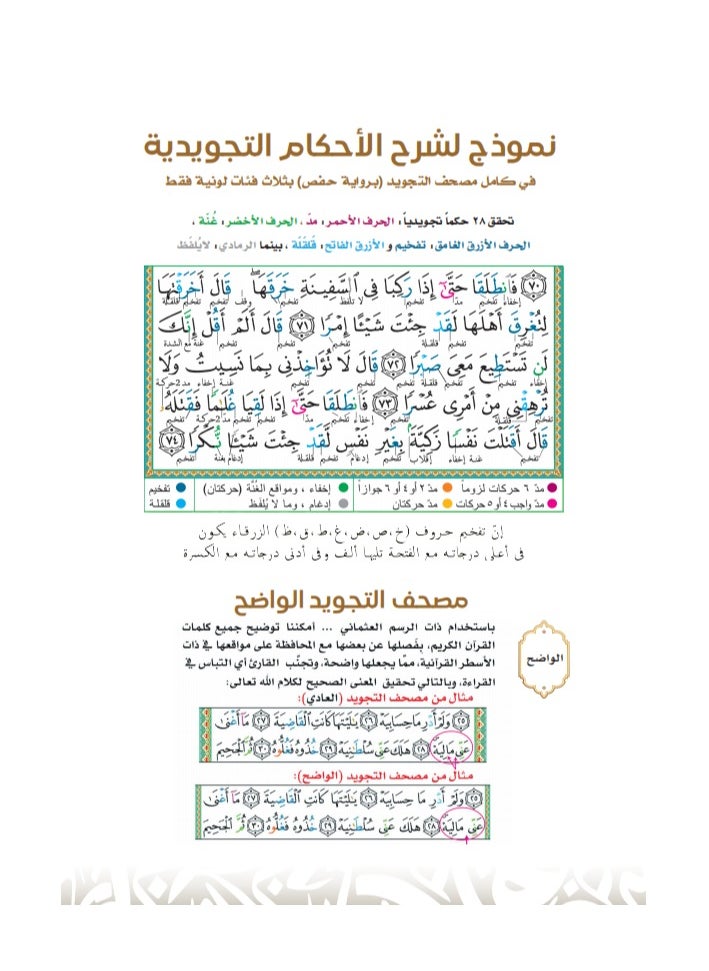 نموذج لشرح الأحكام التجويدية
في كامل مصحف التجويد (برواية حفص) بثلاث فئات لونية فقط
تحقق ٢٨ حكماً تجويدياً: الحرف الأحمر: مدّ، الحرف الأخضر: غُنَّة،
الحرف الأزرق الغامق: تفخيم و الأزرق الفاتح: قلقلَة، بينما الرمادي: لايُلفَظ
﴿٧٠﴾ فَٱنطَلَقَا حَتَّىٰٓ إِذَا رَكِبَا فِى ٱلسَّفِينَةِ خَرَقَهَا ۖ قَالَ أَخَرَقْتَهَا
إخفاء تفخيم مدّ تفخيم لا تلفظ تفخيم وقف تفخيم تفخيم قلقلة
لِتُغْرِقَ أَهْلَهَا لَقَدْ جِئْتَ شَيْـًٔا إِمْرًا ﴿٧١﴾ قَالَ أَلَمْ أَقُلْ إِنَّكَ
تفخيم قلقلة تفخيم تفخيم تفخيم غنة مع الشدة
لَن تَسْتَطِيعَ مَعِىَ صَبْرًا ﴿٧٢﴾ قَالَ لَا تُؤَاخِذْنِى بِمَا نَسِيتُ وَلَا
إخفاء تفخيم تفخيم قلقلة تفخيم تفخيم غنة إخفاء مد2حركة
تُرْهِقْنِى مِنْ أَمْرِى عُسْرًا ﴿٧٣﴾ فَٱنطَلَقَا حَتَّىٰٓ إِذَا لَقِيَا غُلَـٰمًا فَقَتَلَهُۥ
تفخيم قلقلة تفخيم إخفاء تفخيم مدّ تفخيم تفخيم مد2حركة
قَالَ أَقَتَلْتَ نَفْسًا زَكِيَّةًۢ بِغَيْرِ نَفْسٍ لَّقَدْ جِئْتَ شَيْـًٔا نُّكْرًا ﴿٧٤﴾
تفخيم تفخيم غنة إخفاء إقلاب تفخيم إدغام تفخيم قلقلة إدغام بغنة تفخيم
مدّ ٦ حركات لزوماً مدّ ٢ أو ٤ أو ٦ جوازاً إخفاء، ومواقع الغُنَّة (حركتان) تفخيم
مدّ واجب ٤ أو ٥ حركات مدّ حركتان إدغام، وما لا يُلفَظ قلقلة
إنّ تفخيم حروف (خ،ص،ض،غ،ط،ق،ظ) الزرقاء يكون
في أعلى درجاته مع الفتحة تليها ألف وفي أدنى درجاته مع الكسرة
مصحف التجويد الواضح
الواضح
باستخدام ذات الرسم العثماني ... أمكننا توضيح جميع كلمات
القرآن الكريم، بفَصلها عن بعضها مع المحافظة على مواقعها في ذات
الأسطر القرآنية، ممّا يجعلها واضحة، وتجنّب القارئ أي التباس في
القراءة، وبالتالي تحقيق المعنى الصحيح لكلام الله تعالى:
مثال من مصحف التجويد (العادي):
﴿٢٥﴾ وَلَمْ أَدْرِ مَا حِسَابِيَهْ ﴿٢٦﴾ يَـٰلَيْتَهَا كَانَتِ ٱلْقَاضِيَةَ ﴿٢٧﴾ مَآ أَغْنَىٰ
عَنِّى مَالِيَهْ ﴿٢٨﴾ هَلَكَ عَنِّى سُلْطَـٰنِيَهْ ﴿٢٩﴾ خُذُوهُ فَغُلُّوهُ ﴿٣٠﴾ ثُمَّ ٱلْجَحِيمَ
مثال من مصحف التجويد (الواضح):
﴿٢٥﴾ وَلَمْ أَدْرِ مَا حِسَابِيَهْ ﴿٢٦﴾ يَـٰلَيْتَهَا كَانَتِ ٱلْقَاضِيَةَ ﴿٢٧﴾ مَآ أَغْنَىٰ
عَنِّى مَالِيَهْ ﴿٢٨﴾ هَلَكَ عَنِّى سُلْطَـٰنِيَهْ ﴿٢٩﴾ خُذُوهُ فَغُلُّوهُ ﴿٣٠﴾ ثُمَّ ٱلْجَحِيمَ